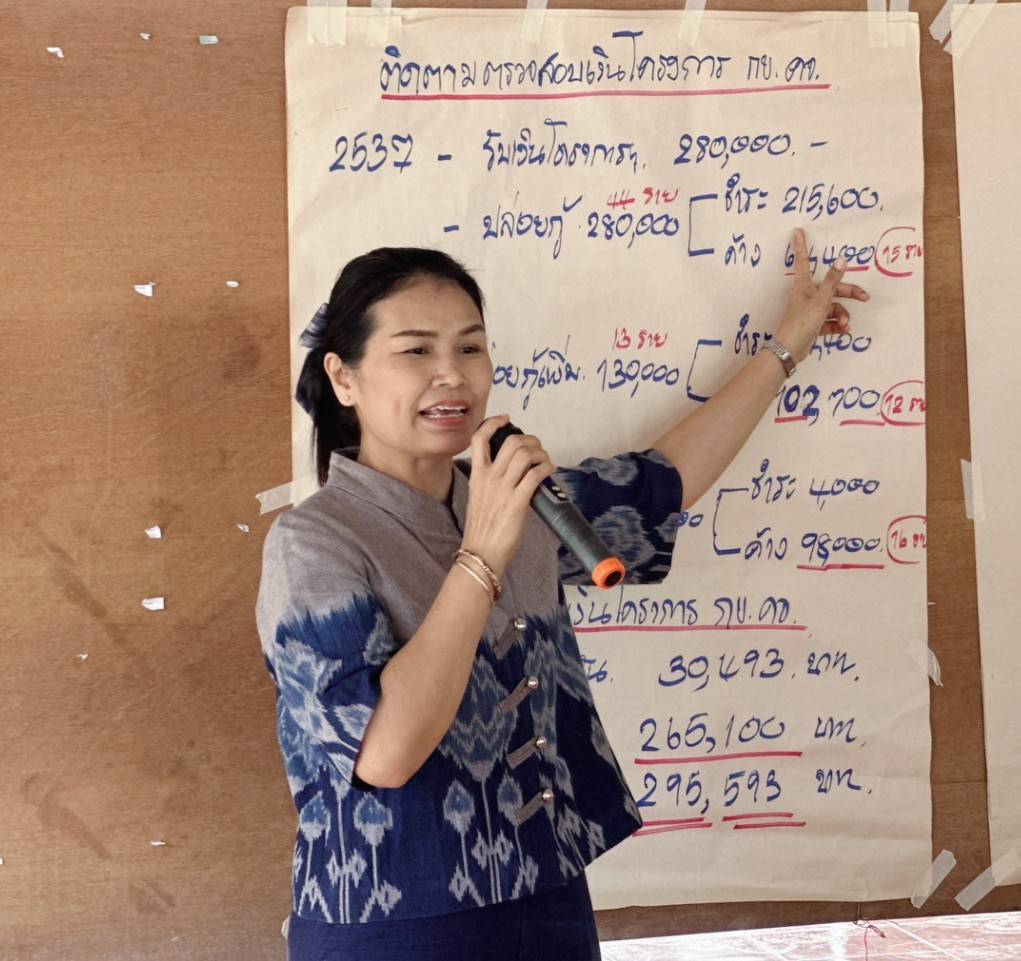 ติดตามตรวจสอบเงินโครงการ กข.คจ.
2537 - รับเงินโครงการฯ. 280,000. -
44 ราย
- ปล่อยกู้ 280,000
ชำระ 215,600.
ค้าง 64,400 15 ราย
13 ราย
130,000
ชำระ ,400
102,700 12 ราย
ชำระ 4,000
ค้าง 98,000. 16 ราย
เงินโครงการ กข.คจ.
30,493. บาท.
265,100 บาท.
295,593 บาท.